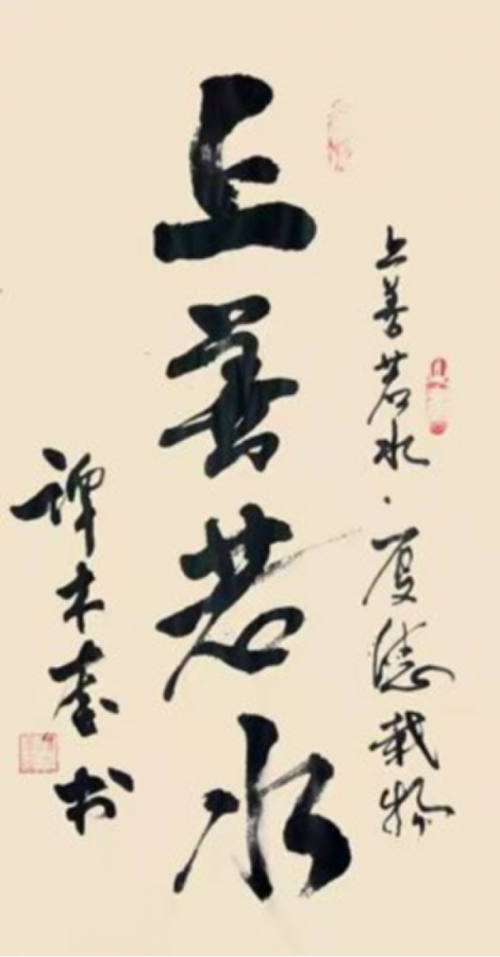 上善若水·厚德载物
上善若水
谭木奎书